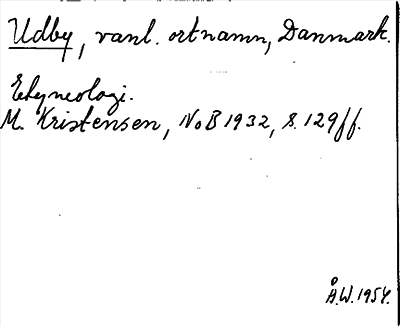 Udby, vanl. ortnamn, Danmark.
Etymologi.
M. Kristensen, NoB 1932, s. 129 ff.
Å.W. 1954.